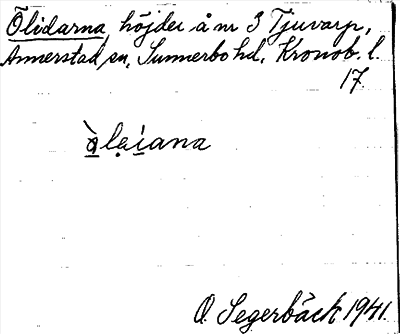 Ölidarna, höjder å nr 3 Tjuvarp,
Annerstad sn, Sunnerbo hd, Kronob. l.
17.
àleíana
O. Segerbäck 1941.